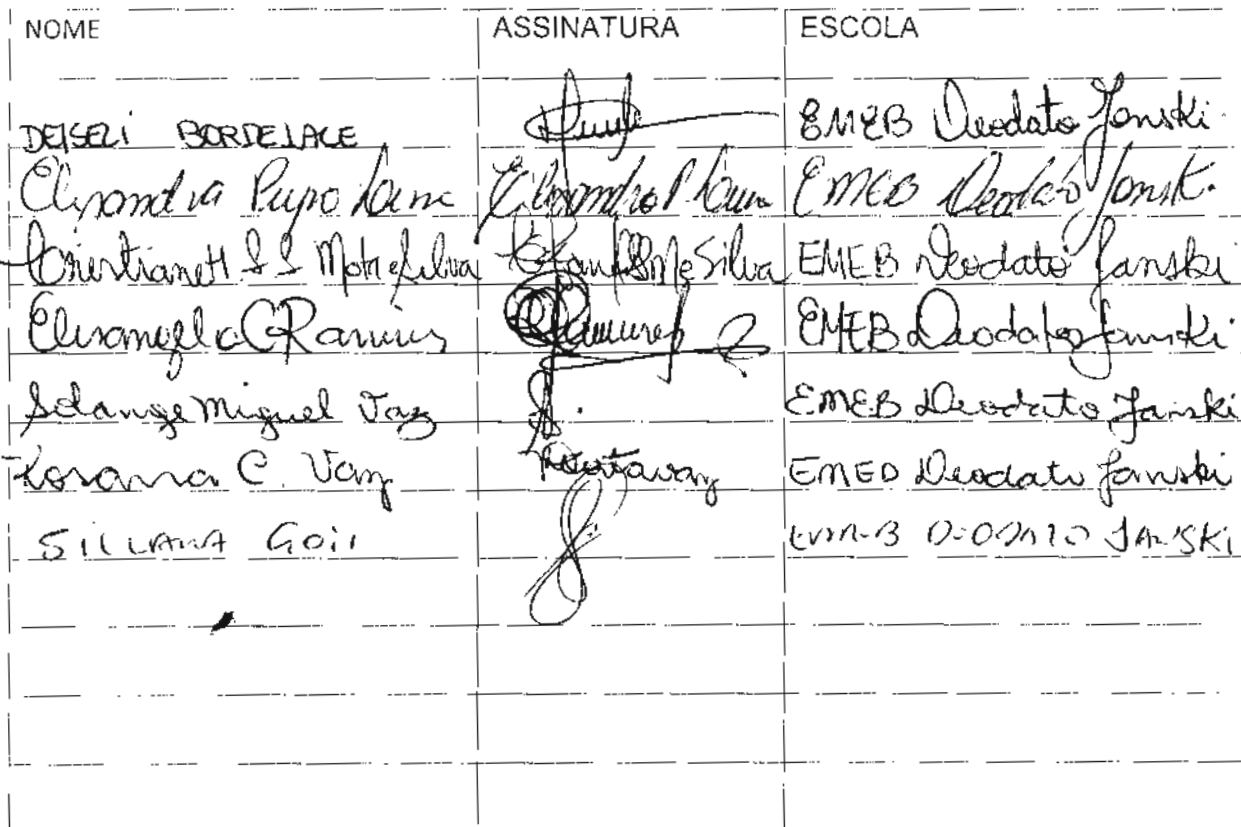 NOME ASSINATURA ESCOLA
DEISELI BORDELACE EMEB Deodato Janski
Elisandra Pupo EMEB Deodato Janski
Cristiane H S S Mota e Silva Silva EMEB Deodato Janski
Elisangela C Ramires Ramires EMEB Deodato Janski
Solange Miguel Vaz EMEB Deodato Janski
Rosana C. Vaz EMEB Deodato Janski
GOIS JANSKI